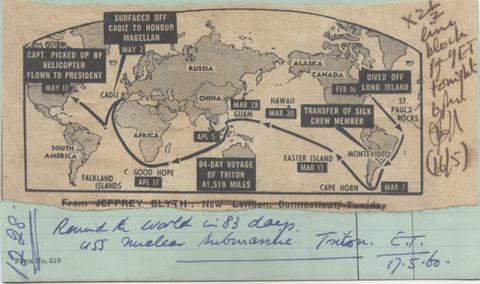 SURFACED OFF
CADIZ TO HONOUR
MAGELLAN
MAY 2
CAPT. PICKED UP BY
HELICOPTER
FLOWN TO PRESIDENT
MAY 10
CADIZ
RUSSIA
CHINA
AFRICA
SOUTH
AMERICA
FALKLAND
ISLANDS
C GOOD HOPE
APL 17
APL 5
MAR 28
GUAM
84-DAY VOYAGE
OF TRITON
41,519 MILES
HAWAII
MAR 20
ALASKA
CANADA
FEB 16
DIVED OFF
LONG ISLAND
ST.
PAUL'S
ROCKS
TRANSFER OF SICK
CREW MEMBER
MONTEVIDEO
EASTER ISLAND
MAR 13
CAPE HORN
MAR 7
line
block
tonight
(16/5)
From JEFFREY BLYTH: New London, Connecticut, Tuesday
1228.
Round the world in 83 days.
USS nuclear submarine Triton. E.T.
17.5.60.
Form No. 259